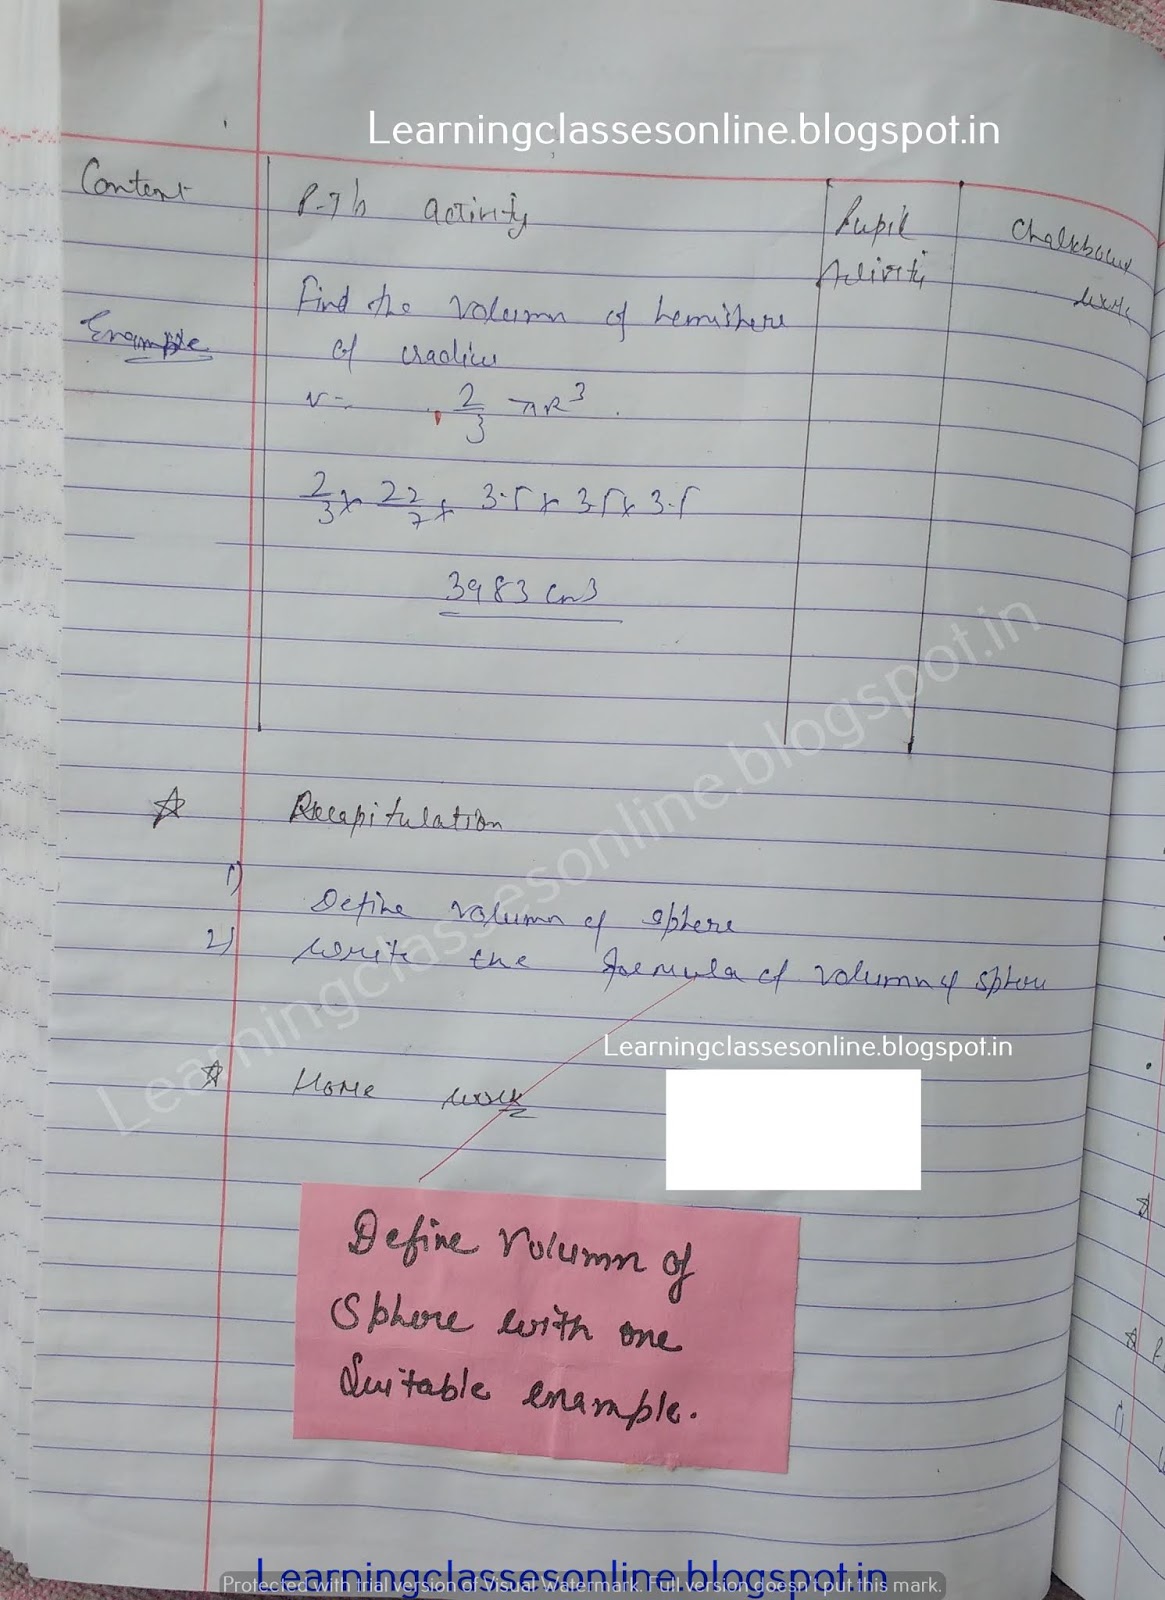 Learningclassesonline.blogspot.in
Content P-T's activity Pupil Activity Chalkboard work
Example Find the volumn of hemishere
of radius
v = 2/3 πR³
2/3 × 22/7 × 3.5 × 3.5 × 3.5
3983 cm3
Recapitulation
1) Define volumn of sphere
2) write the formula of volumn of sphere
Learningclassesonline.blogspot.in
Home work
Define volumn of
sphere with one
Suitable example.
Learningclassesonline.blogspot.in
Learningclassesonline.blogspot.in
Protected with trial version of Visual Watermark. Full version doesn't put this mark.